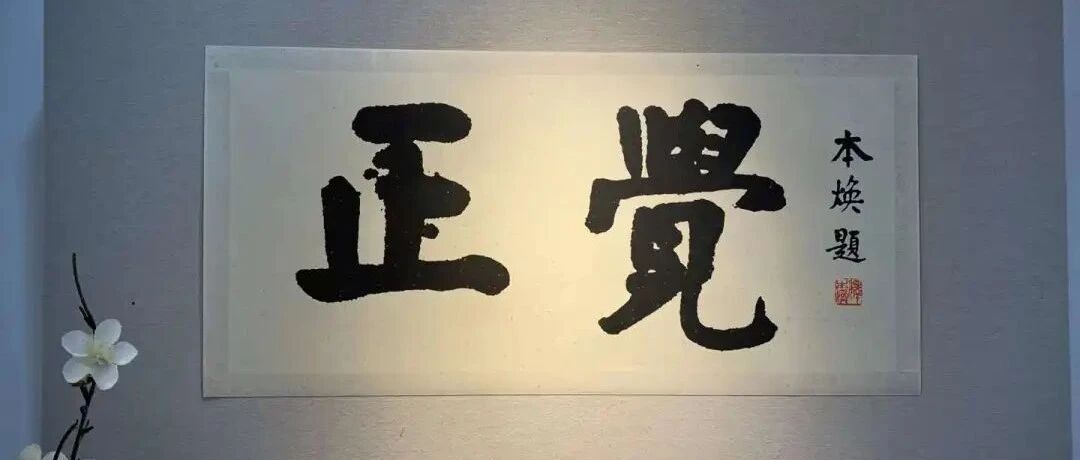 正覺
本焕題